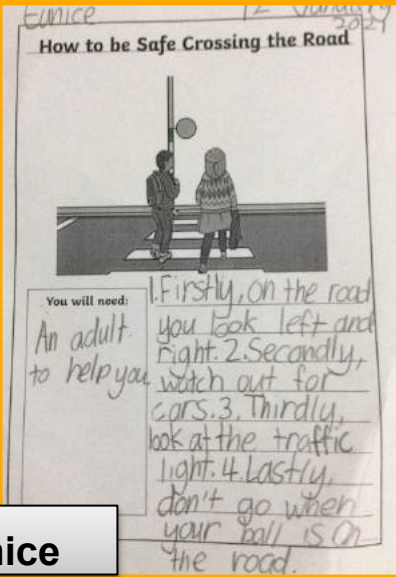 Eunice 12 January
2021
How to be Safe Crossing the Road
You will need:
An adult
to help you
1. Firstly, on the road
you look left and
right. 2. Secondly,
watch out for
cars. 3. Thirdly,
look at the traffic
light. 4. Lastly,
don't go when
your ball is on
the road.
nice